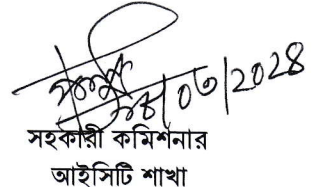 /০৩/2028
সহকারী কমিশনার
আইসিটি শাখা